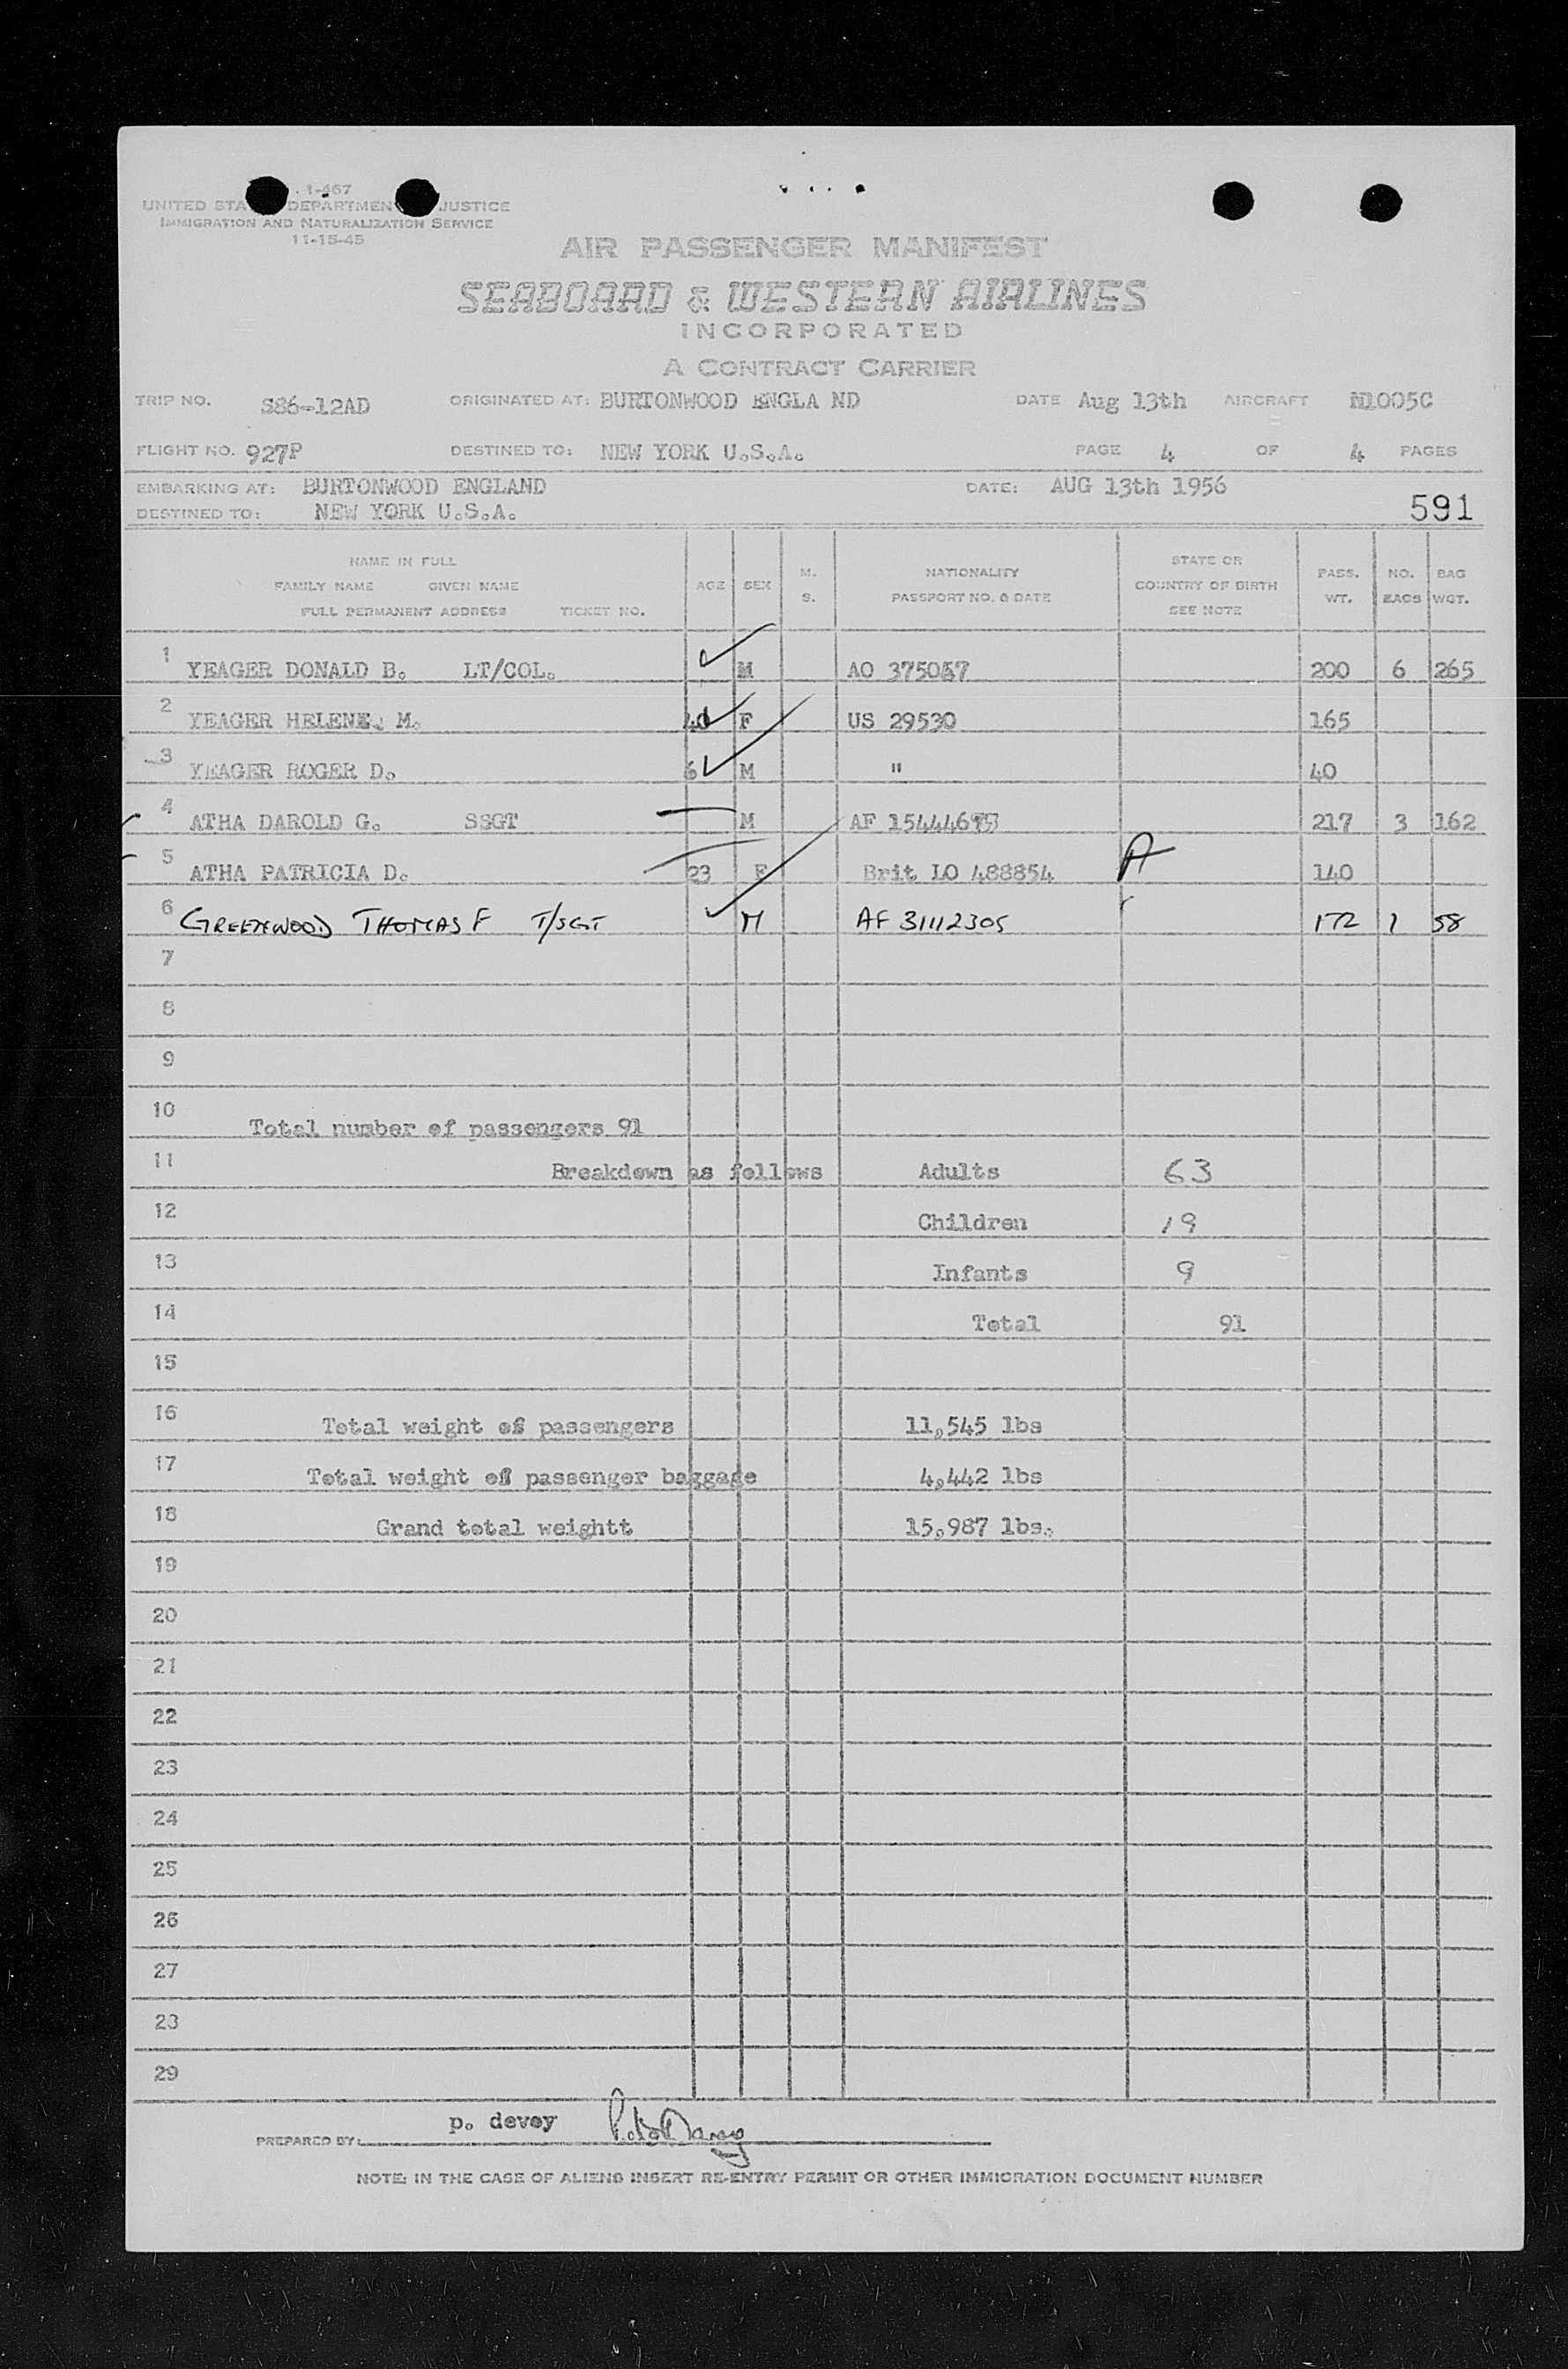 1-467
UNITED STA DEPARTMEN JUSTICE
IMMIGRATION AND NATURALIZATION SERVICE
11-15-45
AIR PASSENGER MANIFEST
SEABOARD & WESTERN AIRLINES
INCORPORATED
A CONTRACT CARRIER
TRIP NO. S86-12AD ORIGINATED AT: BURTONWOOD ENGLA ND DATE Aug 13th AIRCRAFT N1005C
FLIGHT NO. 927P DESTINED TO: NEW YORK U.S.A. PAGE 4 OF 4 PAGES
EMBARKING AT: BURTONWOOD ENGLAND DATE: AUG 13th 1956
DESTINED TO: NEW YORK U.S.A. 591
NAME IN FULL
FAMILY NAME GIVEN NAME
FULL PERMANENT ADDRESS TICKET NO.
AGE SEX M. S.
NATIONALITY
PASSPORT NO. & DATE
STATE OR
COUNTRY OF BIRTH
SEE NOTE
PASS. WT.
NO. BAGS
BAG WGT.
1 YEAGER DONALD B. LT/COL. M AO 3750 7 200 6 265
2 YEAGER HELENE. M. 40 F US 29530 165
3 YEAGER ROGER D. 6 M " 40
4 ATHA DAROLD G. SSGT M AF 217 3 162
5 ATHA PATRICIA D. 23 F Brit LO 488854 A 140
6 GREENWOOD THOMAS F T/SGT M AF 31112305 172 1 58
7
8
9
10 Total number of passengers 91
11 Breakdown as follows Adults 63
12 Children 19
13 Infants 9
14 Total 91
15
16 Total weight of passengers 11,545 lbs
17 Total weight of passenger baggage 4,442 lbs
18 Grand total weightt 15,987 lbs.
19
20
21
22
23
24
25
26
27
28
29
PREPARED BY: p. devey
NOTE: IN THE CASE OF ALIENS INSERT RE-ENTRY PERMIT OR OTHER IMMIGRATION DOCUMENT NUMBER